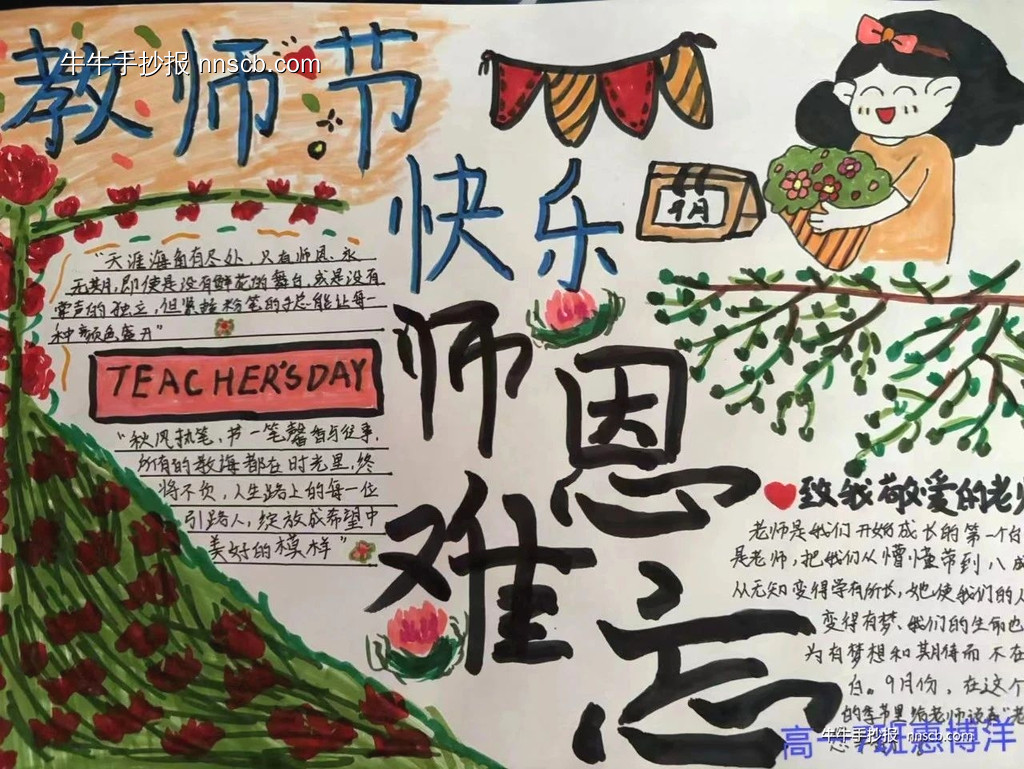 牛牛手抄报 nnscb.com
教师节
快乐
9月
师恩
难忘
"天涯海角有尽处,只有师恩永
无期,即使是没有鲜花的舞台,或是没有
掌声的独立,但紧握粉笔的手总能让每一
种颜色盛开"
TEACHER'S DAY
"秋风执笔,节一笔馨香与往事,
所有的教诲都在时光里,终
将不负,人生路上的每一位
引路人,绽放成希望中
美好的模样"
致我敬爱的老师
老师是我们开始成长的第一个
是老师,把我们从懵懂带到
从无知变得学有所长,她使我们的人
变得有梦、我们的生命也
为有梦想和期待而不在
白。9月份,在这个
的季节里给老师说声"老
牛牛手抄报 nnscb.com
高一7班惠博洋